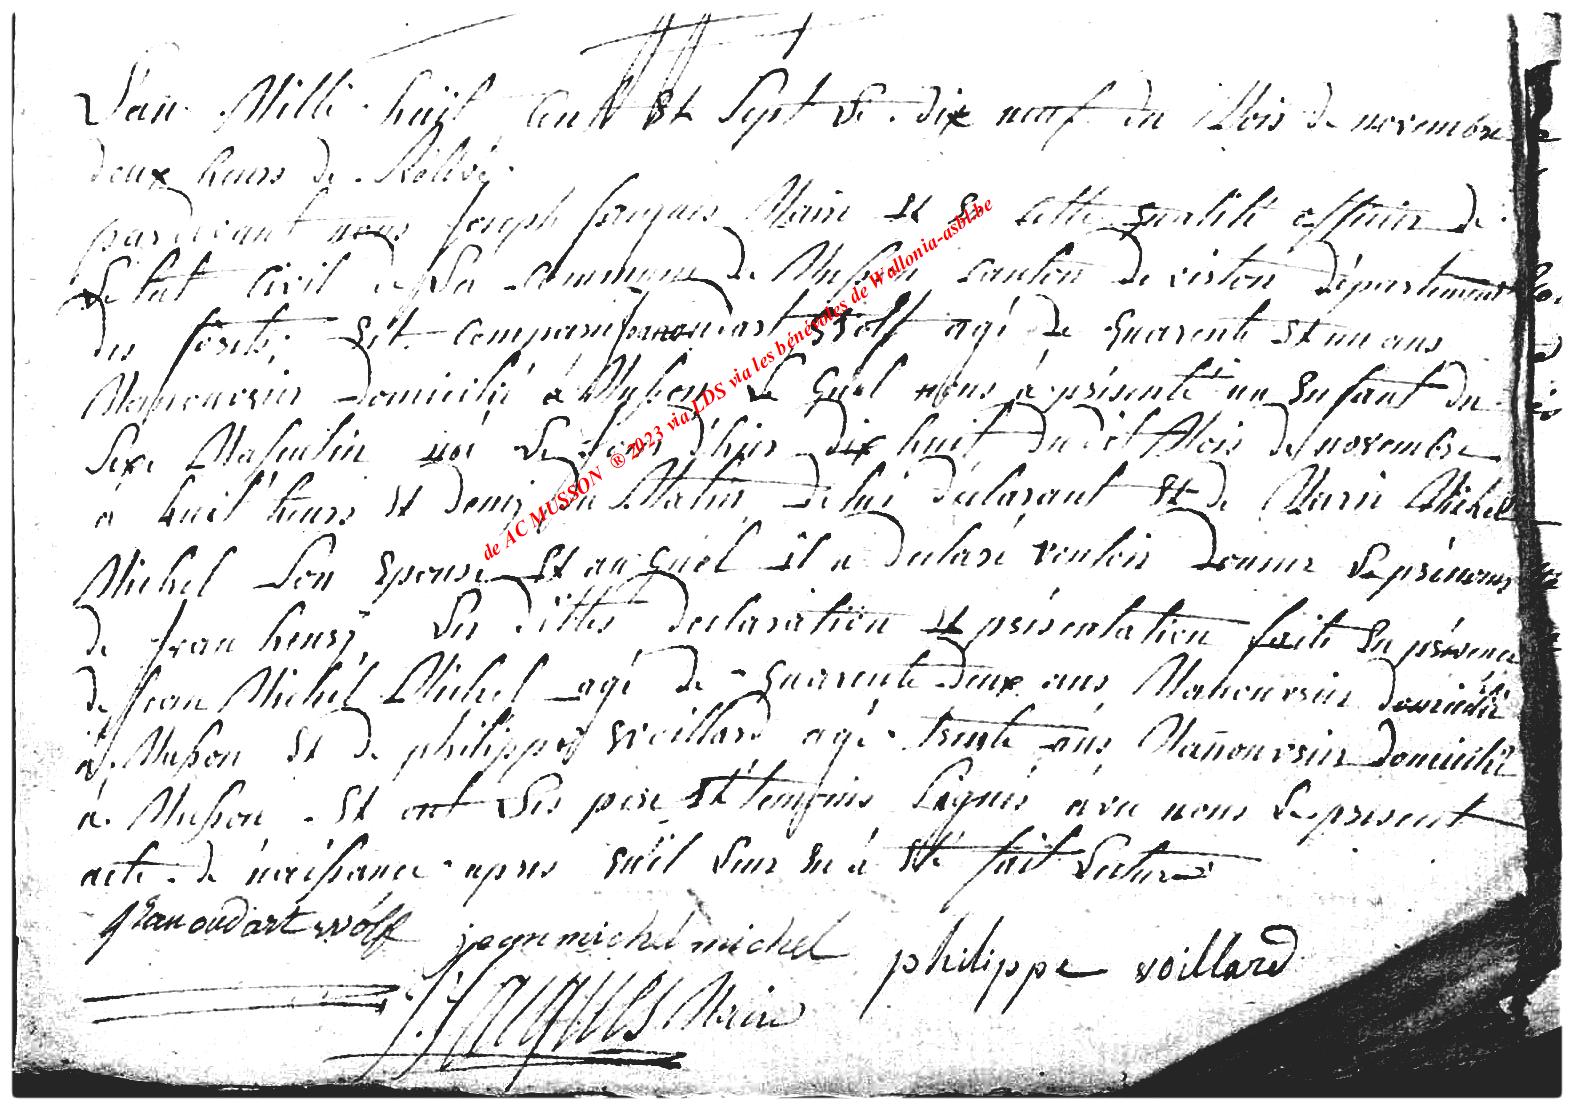 L'an Mille huit Cent et Sept Le dix neuf du Mois de novembre
deux heurs de
pardevant nous Joseph jacques Maire et En cette qualité officier de
Letat Civil de La commune de Musson canton de virton département
des forêts; Est comparu jeanoudart Wolf agé de quarente et un ans
Manouvrier domicilié à Musson Le quel nous à présenté un Enfant du
Sexe Masculin né Le jour d'hier dix huit du dit Mois de novembre
à huit heurs et demi du Matin de lui déclarant et de Marie Michel
Michel Son Epouse et au quel il a declaré vouloir donner Le prénoms
de jean henry, Les dittes declaration et présentation faite En présence
de jean Michel Michel agé de quarente deux ans Manouvrier domicilié
à Musson et de philippe voillard agé trente ans Manouvrier domicilié
à Musson et ont Les pere et temoins Signés avec nous Le present
acte de naissance apres qu'il Leur En à Eté fait Lecture
jeanoudart wolff jean michel michel philippe voillard
J. Jacques Maire
de AC MUSSON ® 2023 via LDS via les bénévoles de Wallonia-asbl.be